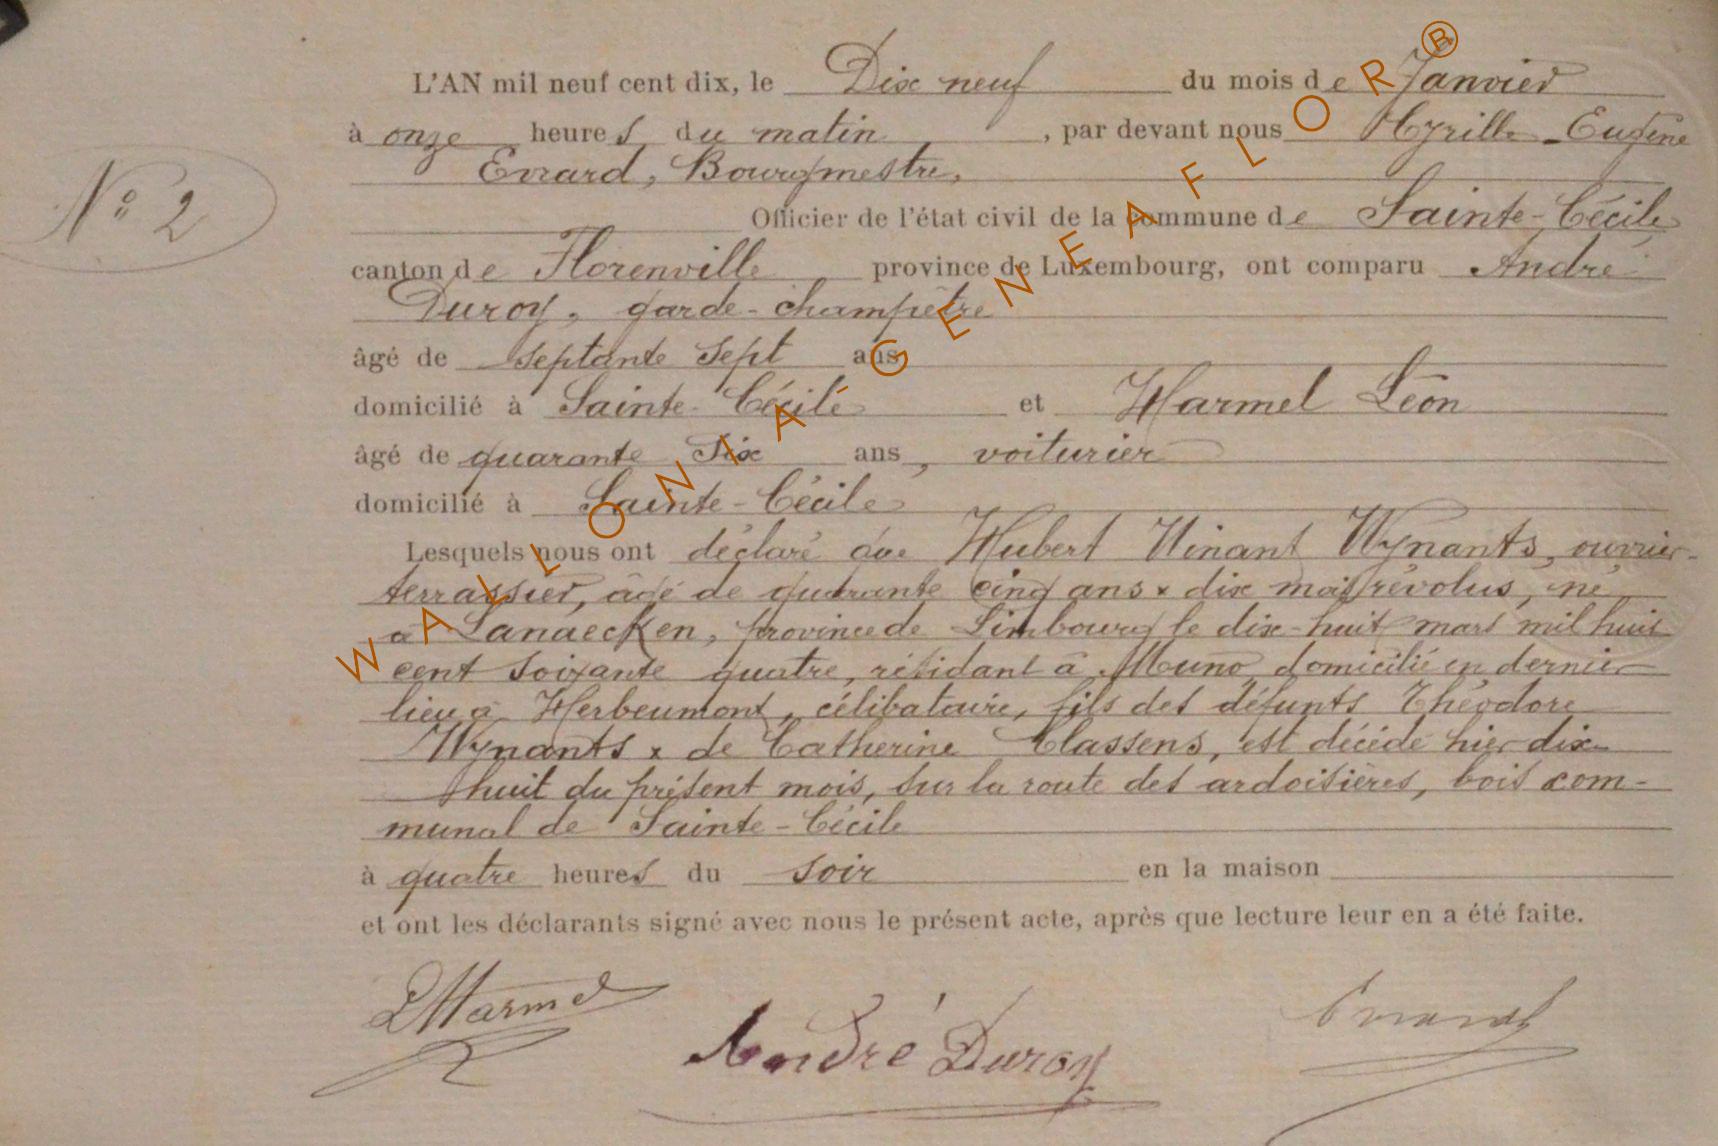 L'AN mil neuf cent dix, le Dix neuf du mois de Janvier
à onze heures du matin, par devant nous Cyrille-Eugène
Evrard, Bourgmestre,
N° 2
Officier de l'état civil de la commune de Sainte-Cécile
canton de Florenville province de Luxembourg, ont comparu André
Duroy, garde-champêtre
âgé de septante sept ans
domicilié à Sainte-Cécile et Harmel Léon
âgé de quarante six ans, voiturier
domicilié à Sainte-Cécile
Lesquels nous ont déclaré que Hubert Winant Wynants, ouvrier-
terrassier, âgé de quarante cinq ans x dix mois révolus, né
à Lanaecken, province de Limbourg le dix-huit mars mil huit
cent soixante quatre, résidant à Muno, domicilié en dernier
lieu à Herbeumont, célibataire, fils des défunts Théodore
Wynants x de Catherine Classens, est décédé hier dix
huit du présent mois, sur la route des ardoisières, bois com-
munal de Sainte-Cécile
à quatre heures du soir en la maison
et ont les déclarants signé avec nous le présent acte, après que lecture leur en a été faite.
LHarmel
André Duroy
Evrard
WALLONIA-GENEAFLOR®